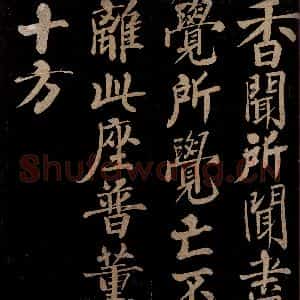 香聞所聞盡
覺所覺亡不
離此座普薰
十方
Shufawang.cn